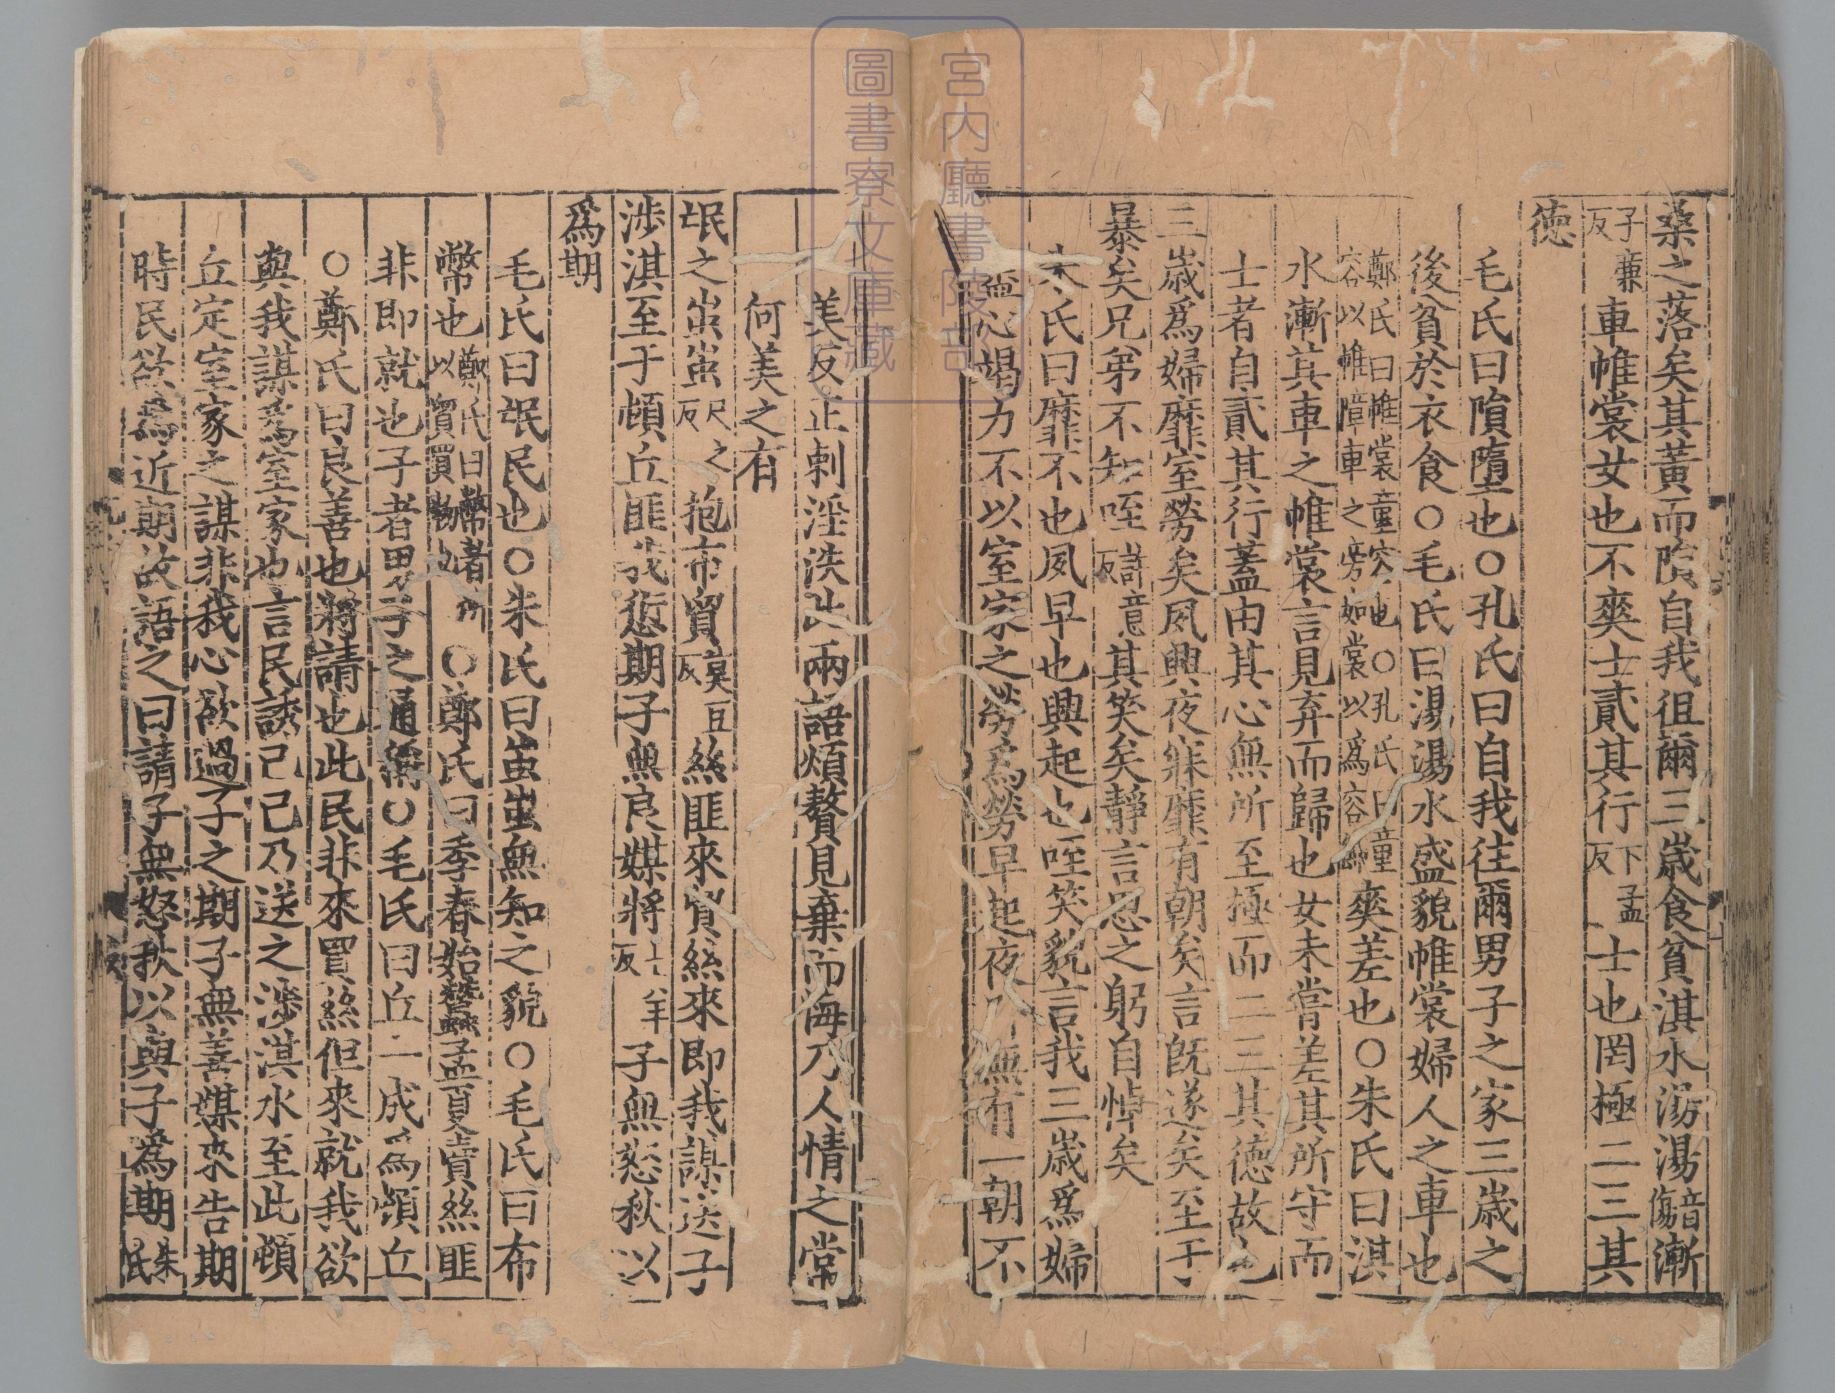 桑之落矣其黃而隕自我徂爾三歳食貧淇水湯湯音傷漸
子廉反車帷裳女也不爽士貳其行下孟反士也罔極二三其
德
毛氏曰隕墮也○孔氏曰自我往爾男子之家三歳之
後貧於衣食○毛氏曰湯湯水盛貌帷裳婦人之車也
鄭氏曰帷裳童容也○孔氏曰童容以帷障車之旁如裳以爲容飾爽差也○朱氏曰淇
水漸其車之帷裳言見弃而歸也女未嘗差其所守而
士者自貳其行蓋由其心無所至極而二三其德故也
三歳爲婦靡室勞矣夙興夜寐靡有朝矣言旣遂矣至于
暴矣兄弟不知咥許意反其笑矣靜言思之躬自悼矣
朱氏曰靡不也夙早也興起也咥笑貌言我三歳爲婦
盡心竭力不以室家之勞爲勞早起夜 無有一朝不
美反正刺淫泆此兩語煩贅見棄而悔乃人情之常
何美之有
氓之蚩蚩尺之反抱布貿莫豆反絲匪來貿絲來即我謀送子
涉淇至于頓丘匪我愆期子無良媒將七羊反子無怒秋以
爲期
毛氏曰氓民也○朱氏曰蚩蚩無知之貌○毛氏曰布
幣也鄭氏曰幣者所以貿買物也○鄭氏曰季春始蠶孟夏賣絲匪
非即就也子者男子之通稱○毛氏曰丘一成爲頓丘
○鄭氏曰良善也將請也此民非來買絲但來就我欲
與我謀爲室家也言民誘己己乃送之涉淇水至此頓
丘定室家之謀非我心欲過子之期子無善媒來告期
時民欲爲近期故語之曰請子無怒秋以與子爲期朱氏
宮内廳書陵部
圖書寮文庫藏